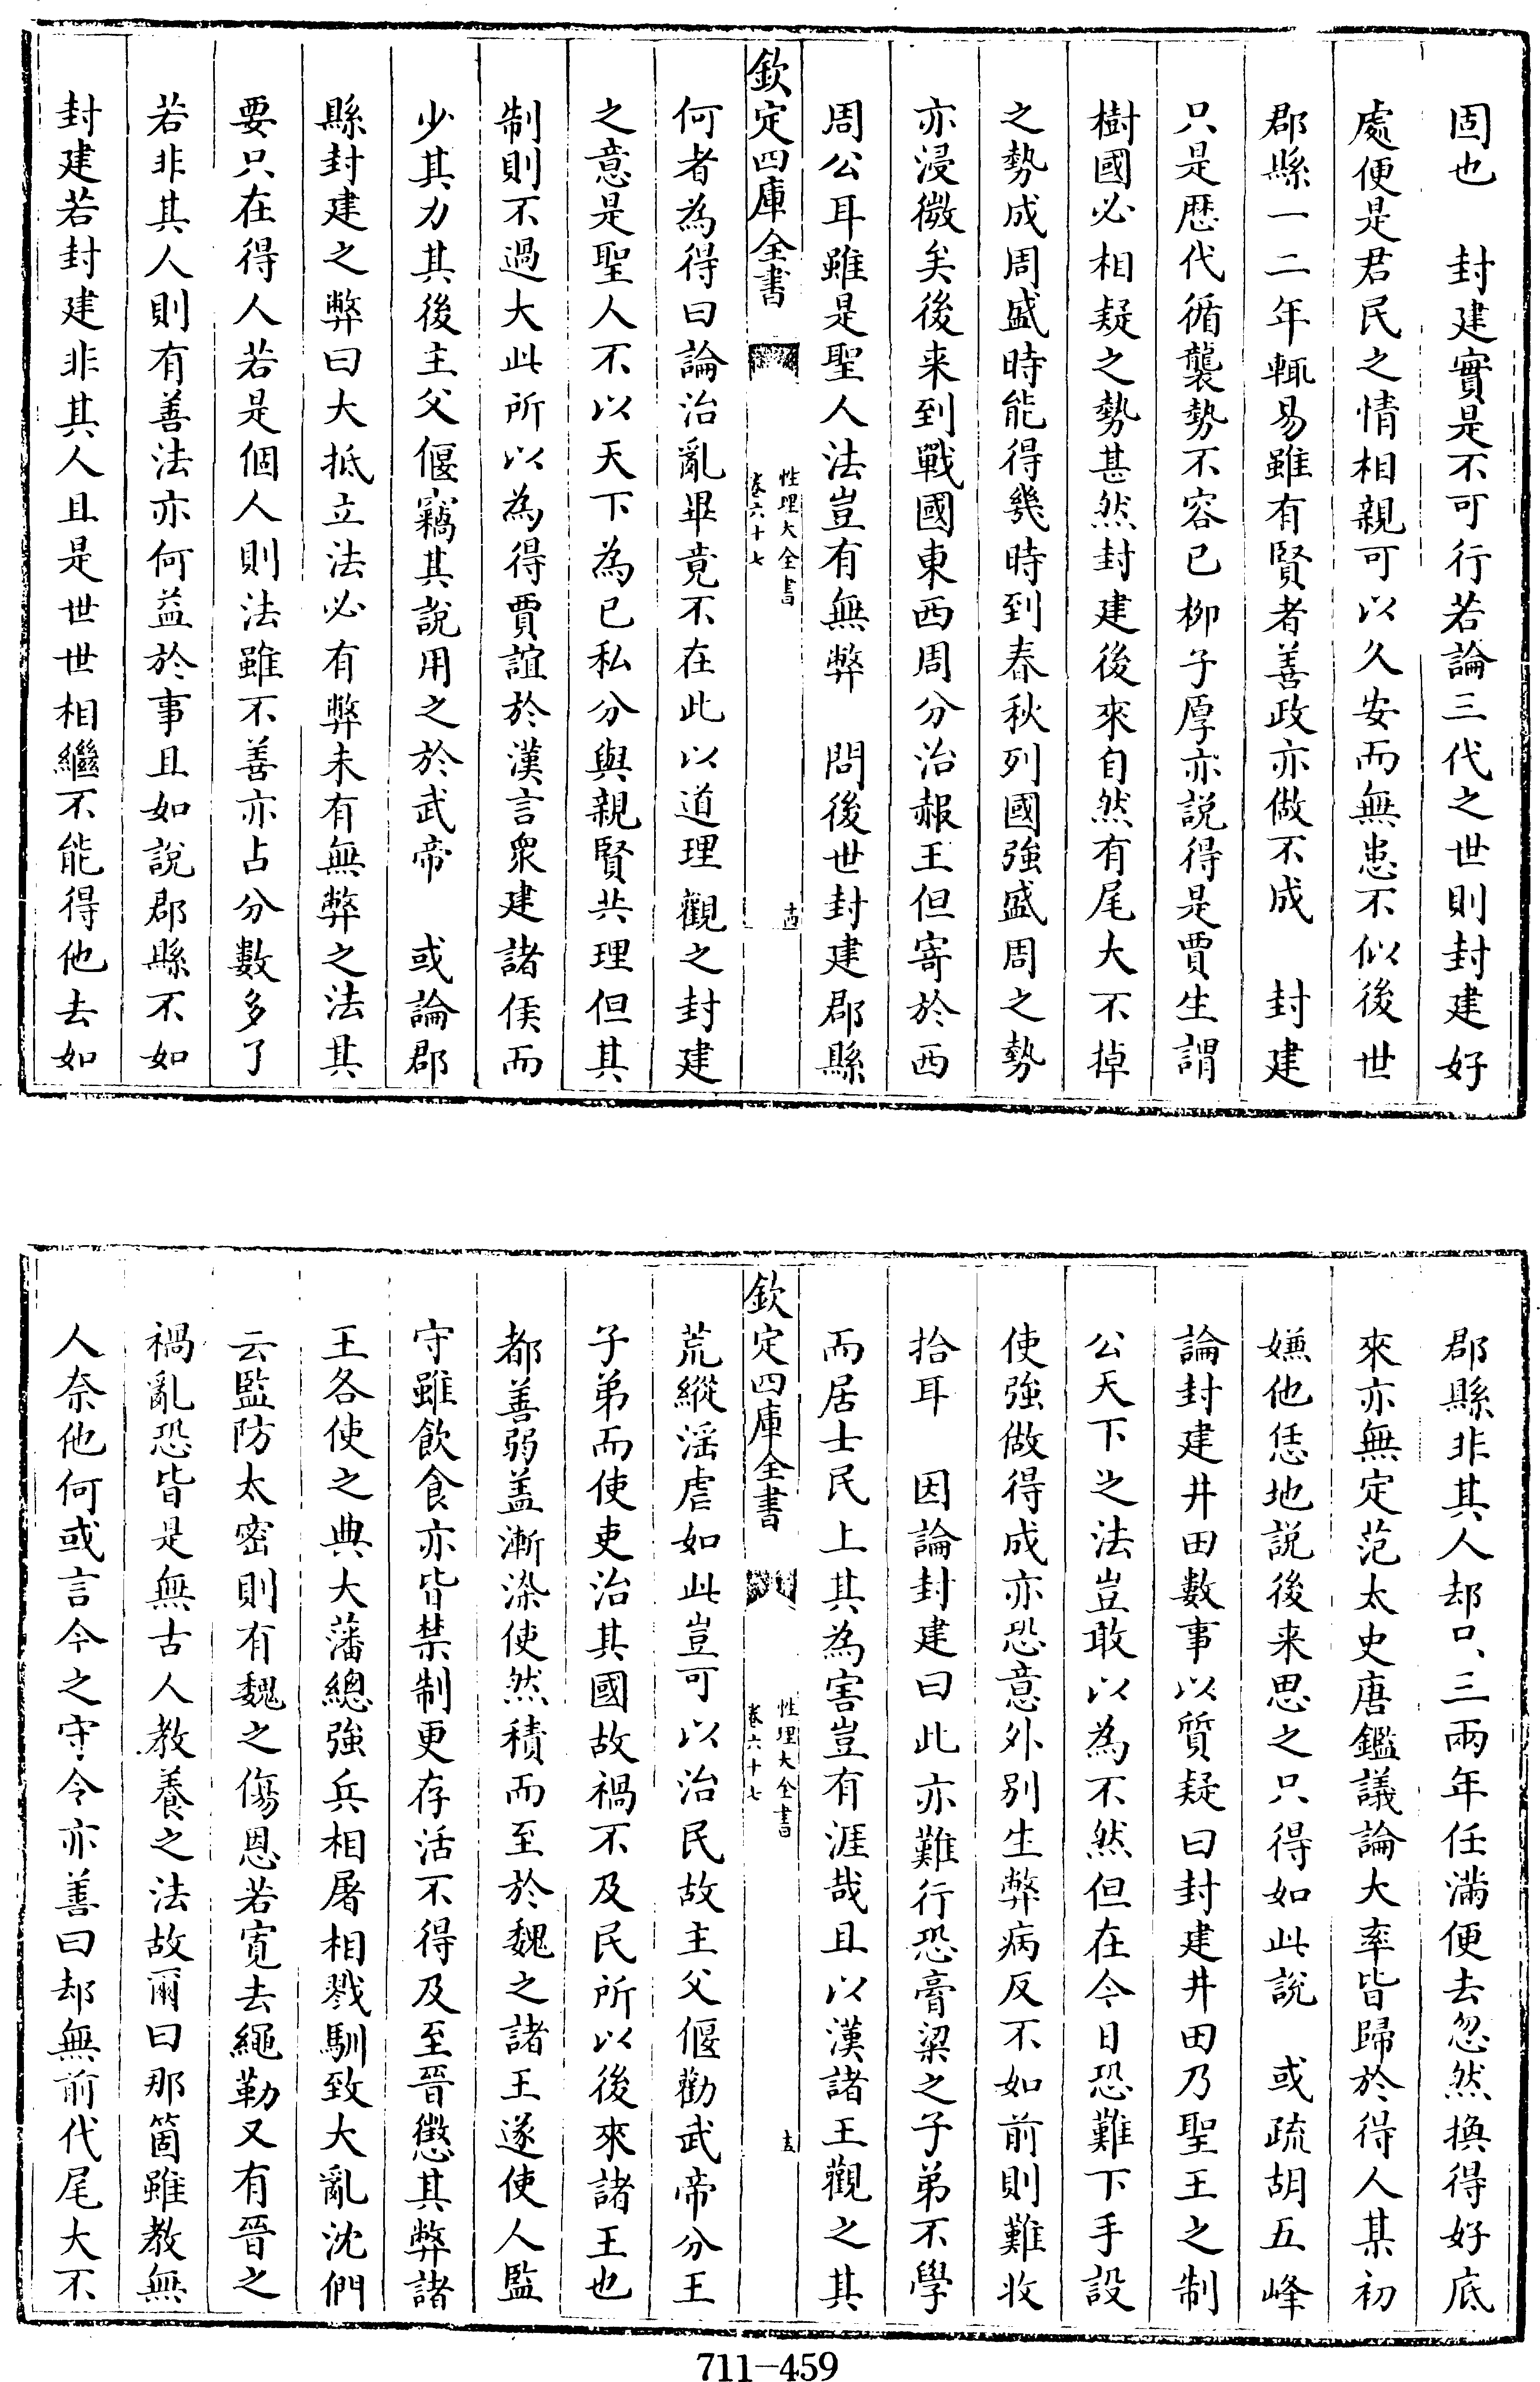 固也　封建實是不可行若論三代之世則封建好
處便是君民之情相親可以久安而無患不似後世
郡縣一二年輒易雖有賢者善政亦做不成　封建
只是歴代循襲勢不容已柳子厚亦説得是賈生謂
樹國必相疑之勢甚然封建後來自然有尾大不掉
之勢成周盛時能得幾時到春秋列國強盛周之勢
亦浸微矣後来到戰國東西周分治赧王但寄於西
周公耳雖是聖人法豈有無弊　問後世封建郡縣
欽定四庫全書
性理大全書
卷六十七
十四
何者為得曰論治亂畢竟不在此以道理觀之封建
之意是聖人不以天下為已私分與親賢共理但其
制則不過大此所以為得賈誼於漢言衆建諸侯而
少其力其後主父偃竊其說用之於武帝　或論郡
縣封建之弊曰大抵立法必有弊未有無弊之法其
要只在得人若是個人則法雖不善亦占分數多了
若非其人則有善法亦何益於事且如說郡縣不如
封建若封建非其人且是世世相繼不能得他去如
郡縣非其人却只三兩年任滿便去忽然換得好底
來亦無定范太史唐鑑議論大率皆歸於得人某初
嫌他恁地説後来思之只得如此說　或疏胡五峰
論封建井田數事以質疑曰封建井田乃聖王之制
公天下之法豈敢以為不然但在今日恐難下手設
使強做得成亦恐意外别生弊病反不如前則難收
拾耳　因論封建曰此亦難行恐膏粱之子弟不學
而居士民上其為害豈有涯哉且以漢諸王觀之其
欽定四庫全書
性理大全書
卷六十七
十五
荒縱淫虐如此豈可以治民故主父偃勸武帝分王
子弟而使吏治其國故禍不及民所以後來諸王也
都善弱盖漸染使然積而至於魏之諸王遂使人監
守雖飲食亦皆禁制更存活不得及至晉懲其弊諸
王各使之典大藩總強兵相屠相戮馴致大亂沈僴
云監防太密則有魏之傷恩若寛去繩勒又有晉之
禍亂恐皆是無古人教養之法故爾曰那箇雖教無
人奈他何或言今之守令亦善曰却無前代尾大不
711-459